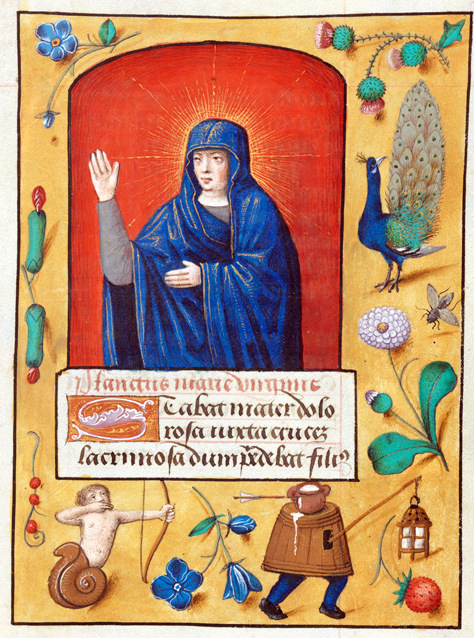 Planctus marie virginis
Stabat mater dolo
rosa iuxta cruceꝫ
lacrimosa dum pēdebat filiꝰ